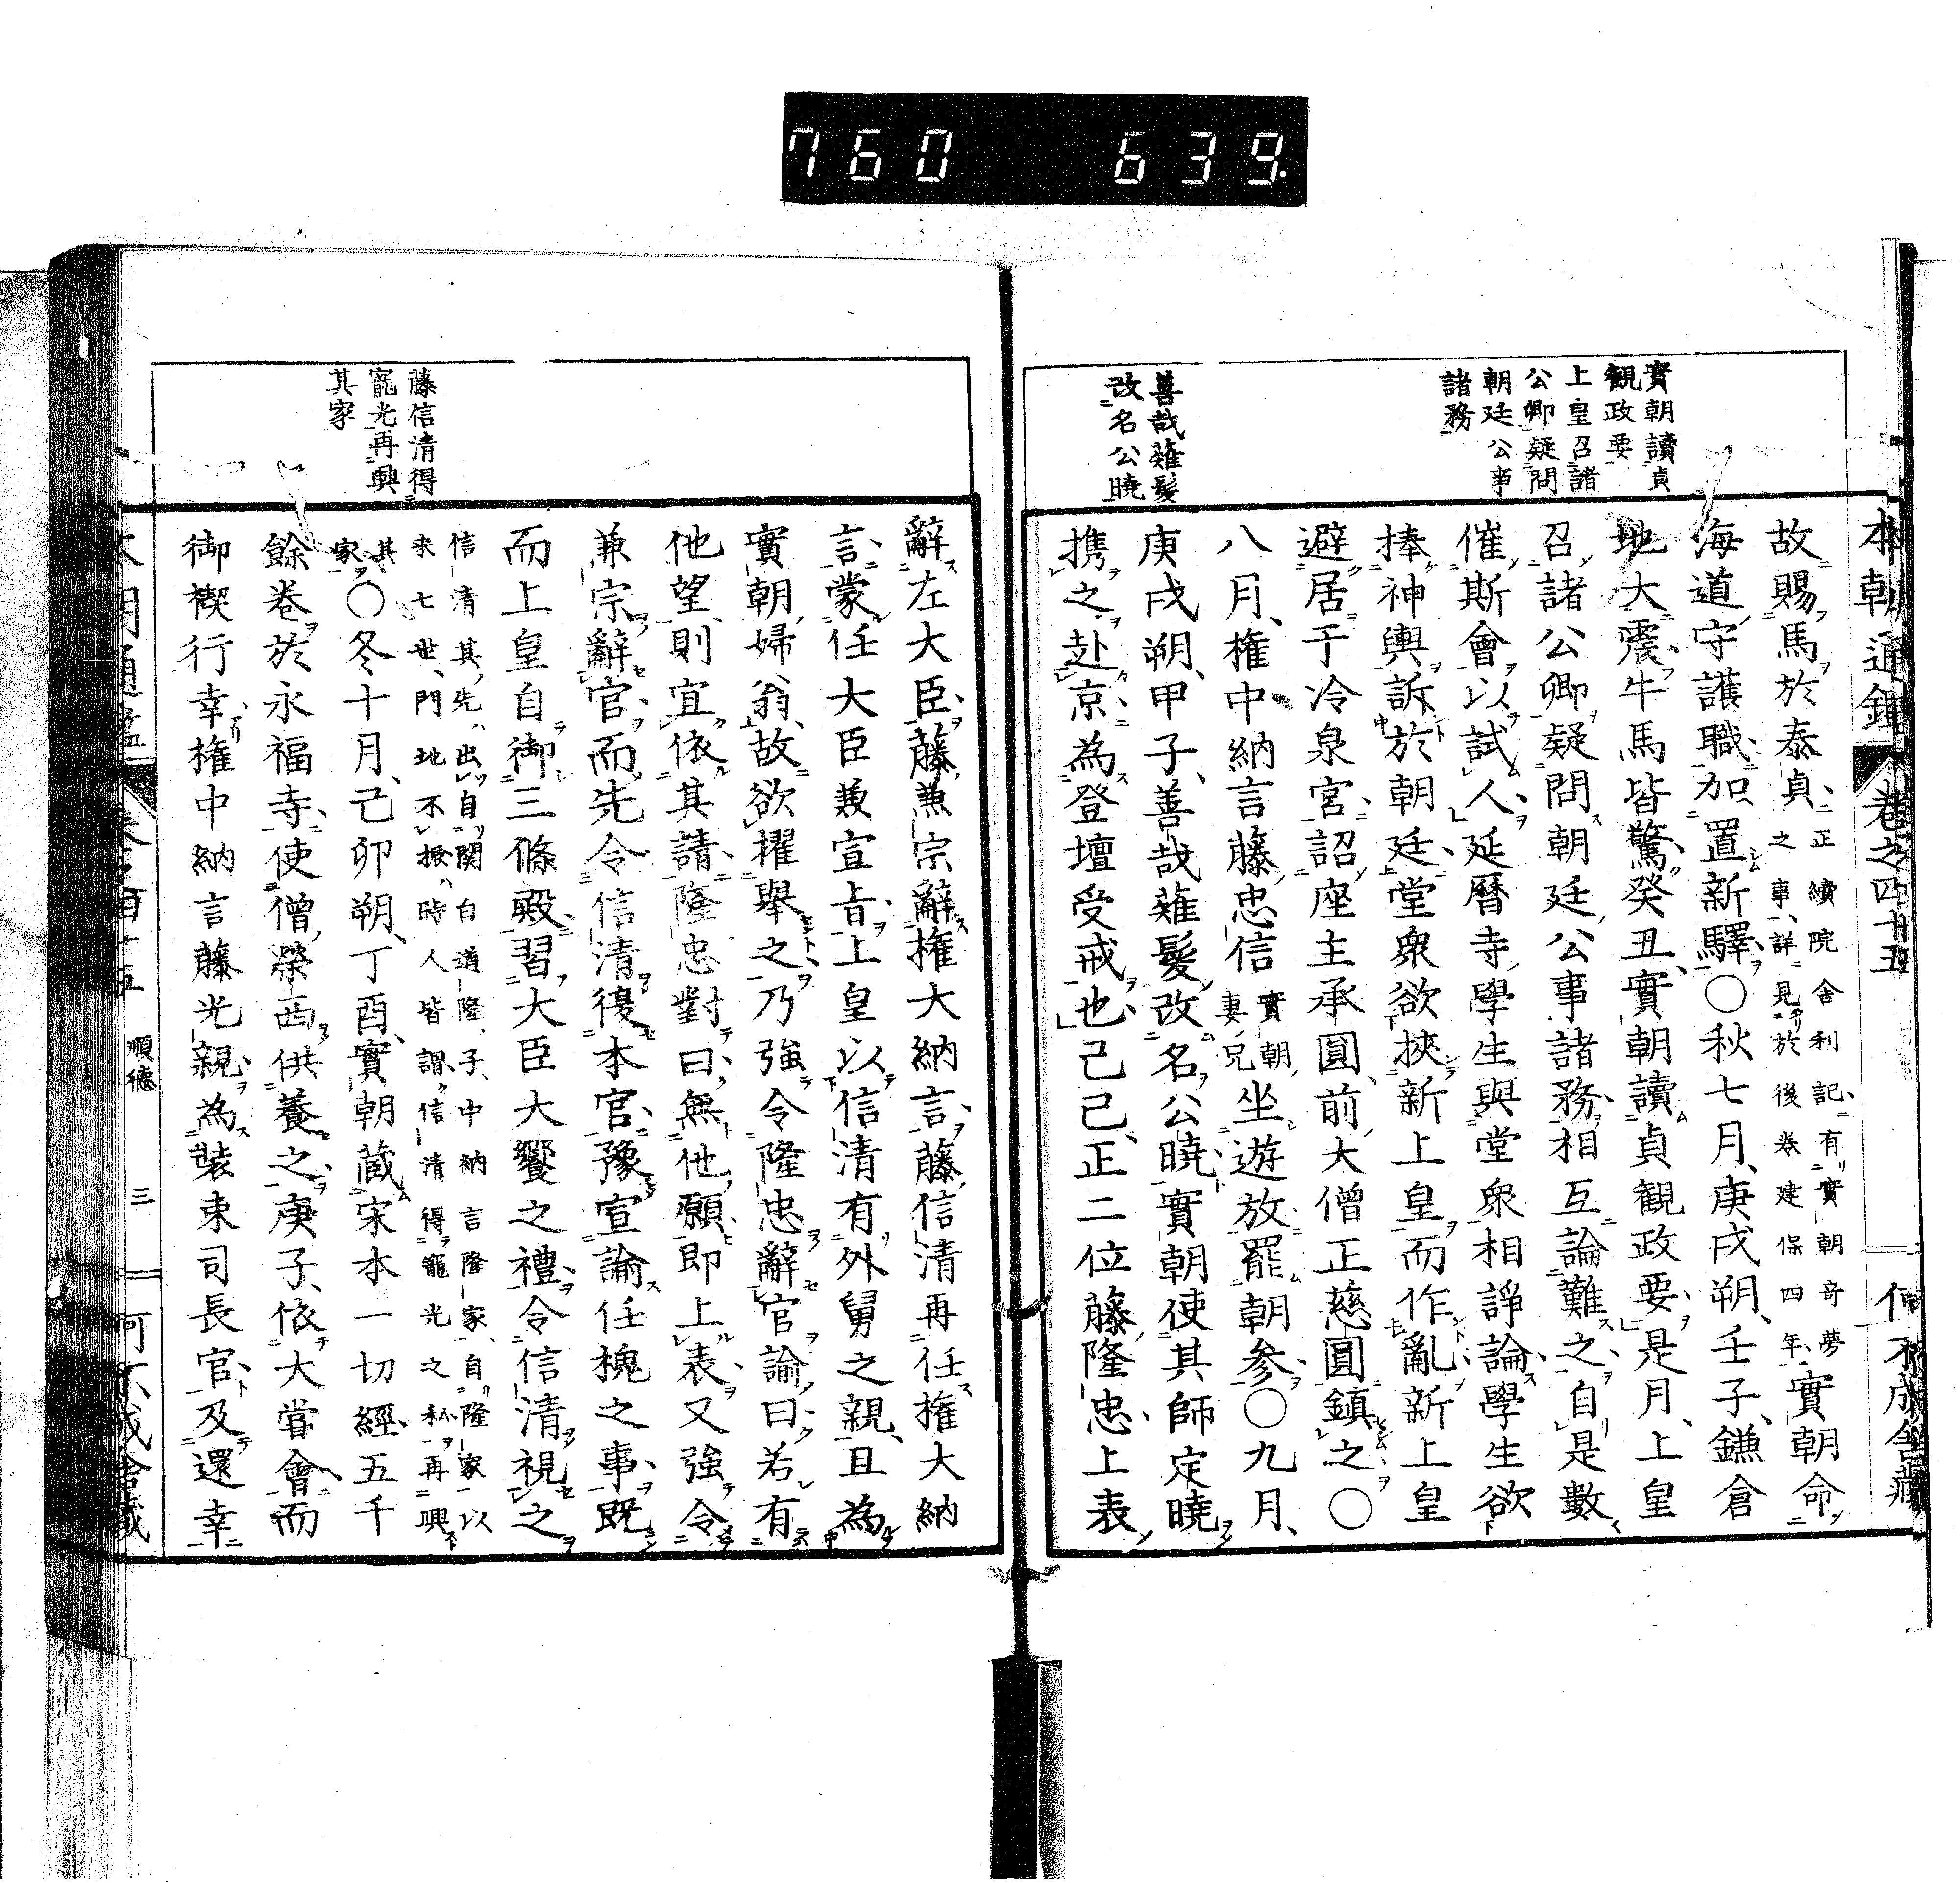 760 639.
本朝通鑑 卷之四十五 何不成舍藏
實朝讀貞
觀政要
上皇召諸
公卿疑問
朝廷公事
諸務
善哉薙髮
改名公曉
故賜馬於泰貞正續院舍利記有實朝奇夢
之事詳見於後卷建保四年實朝命
海道守護職加置新驛〇秋七月庚戌朔壬子鎌倉
地大震牛馬皆驚癸丑實朝讀貞觀政要是月上皇
召諸公卿疑問朝廷公事諸務相互論難之自是數
催斯會以試人延曆寺學生與堂衆相諍論學生欲
捧神輿訴於朝廷堂衆欲挾新上皇而作亂新上皇
避居于冷泉宮詔座主承圓前大僧正慈圓鎮之〇
八月權中納言藤忠信實朝
妻兄坐遊放罷朝參〇九月
庚戌朔甲子善哉薙髮改名公曉實朝使其師定曉
携之赴京為登壇受戒也己己正二位藤隆忠上表
藤信清得
寵光再興
其家
辭左大臣藤兼宗辭權大納言藤信清再任權大納
言蒙任大臣兼宣旨上皇以信清有外舅之親且為
實朝婦翁故欲擢舉之乃強令隆忠辭官諭曰若有
他望則宜依其請隆忠對曰無他願即上表又強令
兼宗辭官而先令信清復本官豫宣諭任槐之事既
而上皇自御三條殿習大臣大饗之禮令信清視之
信清其先出自關白道隆子中納言隆家自隆家以
来七世門地不振時人皆謂信清得寵光之私再興
其
家〇冬十月己卯朔丁酉實朝藏宋本一切經五千
餘卷於永福寺使僧榮西供養之庚子依大嘗會而
御禊行幸權中納言藤光親為裝束司長官及還幸
順德 三